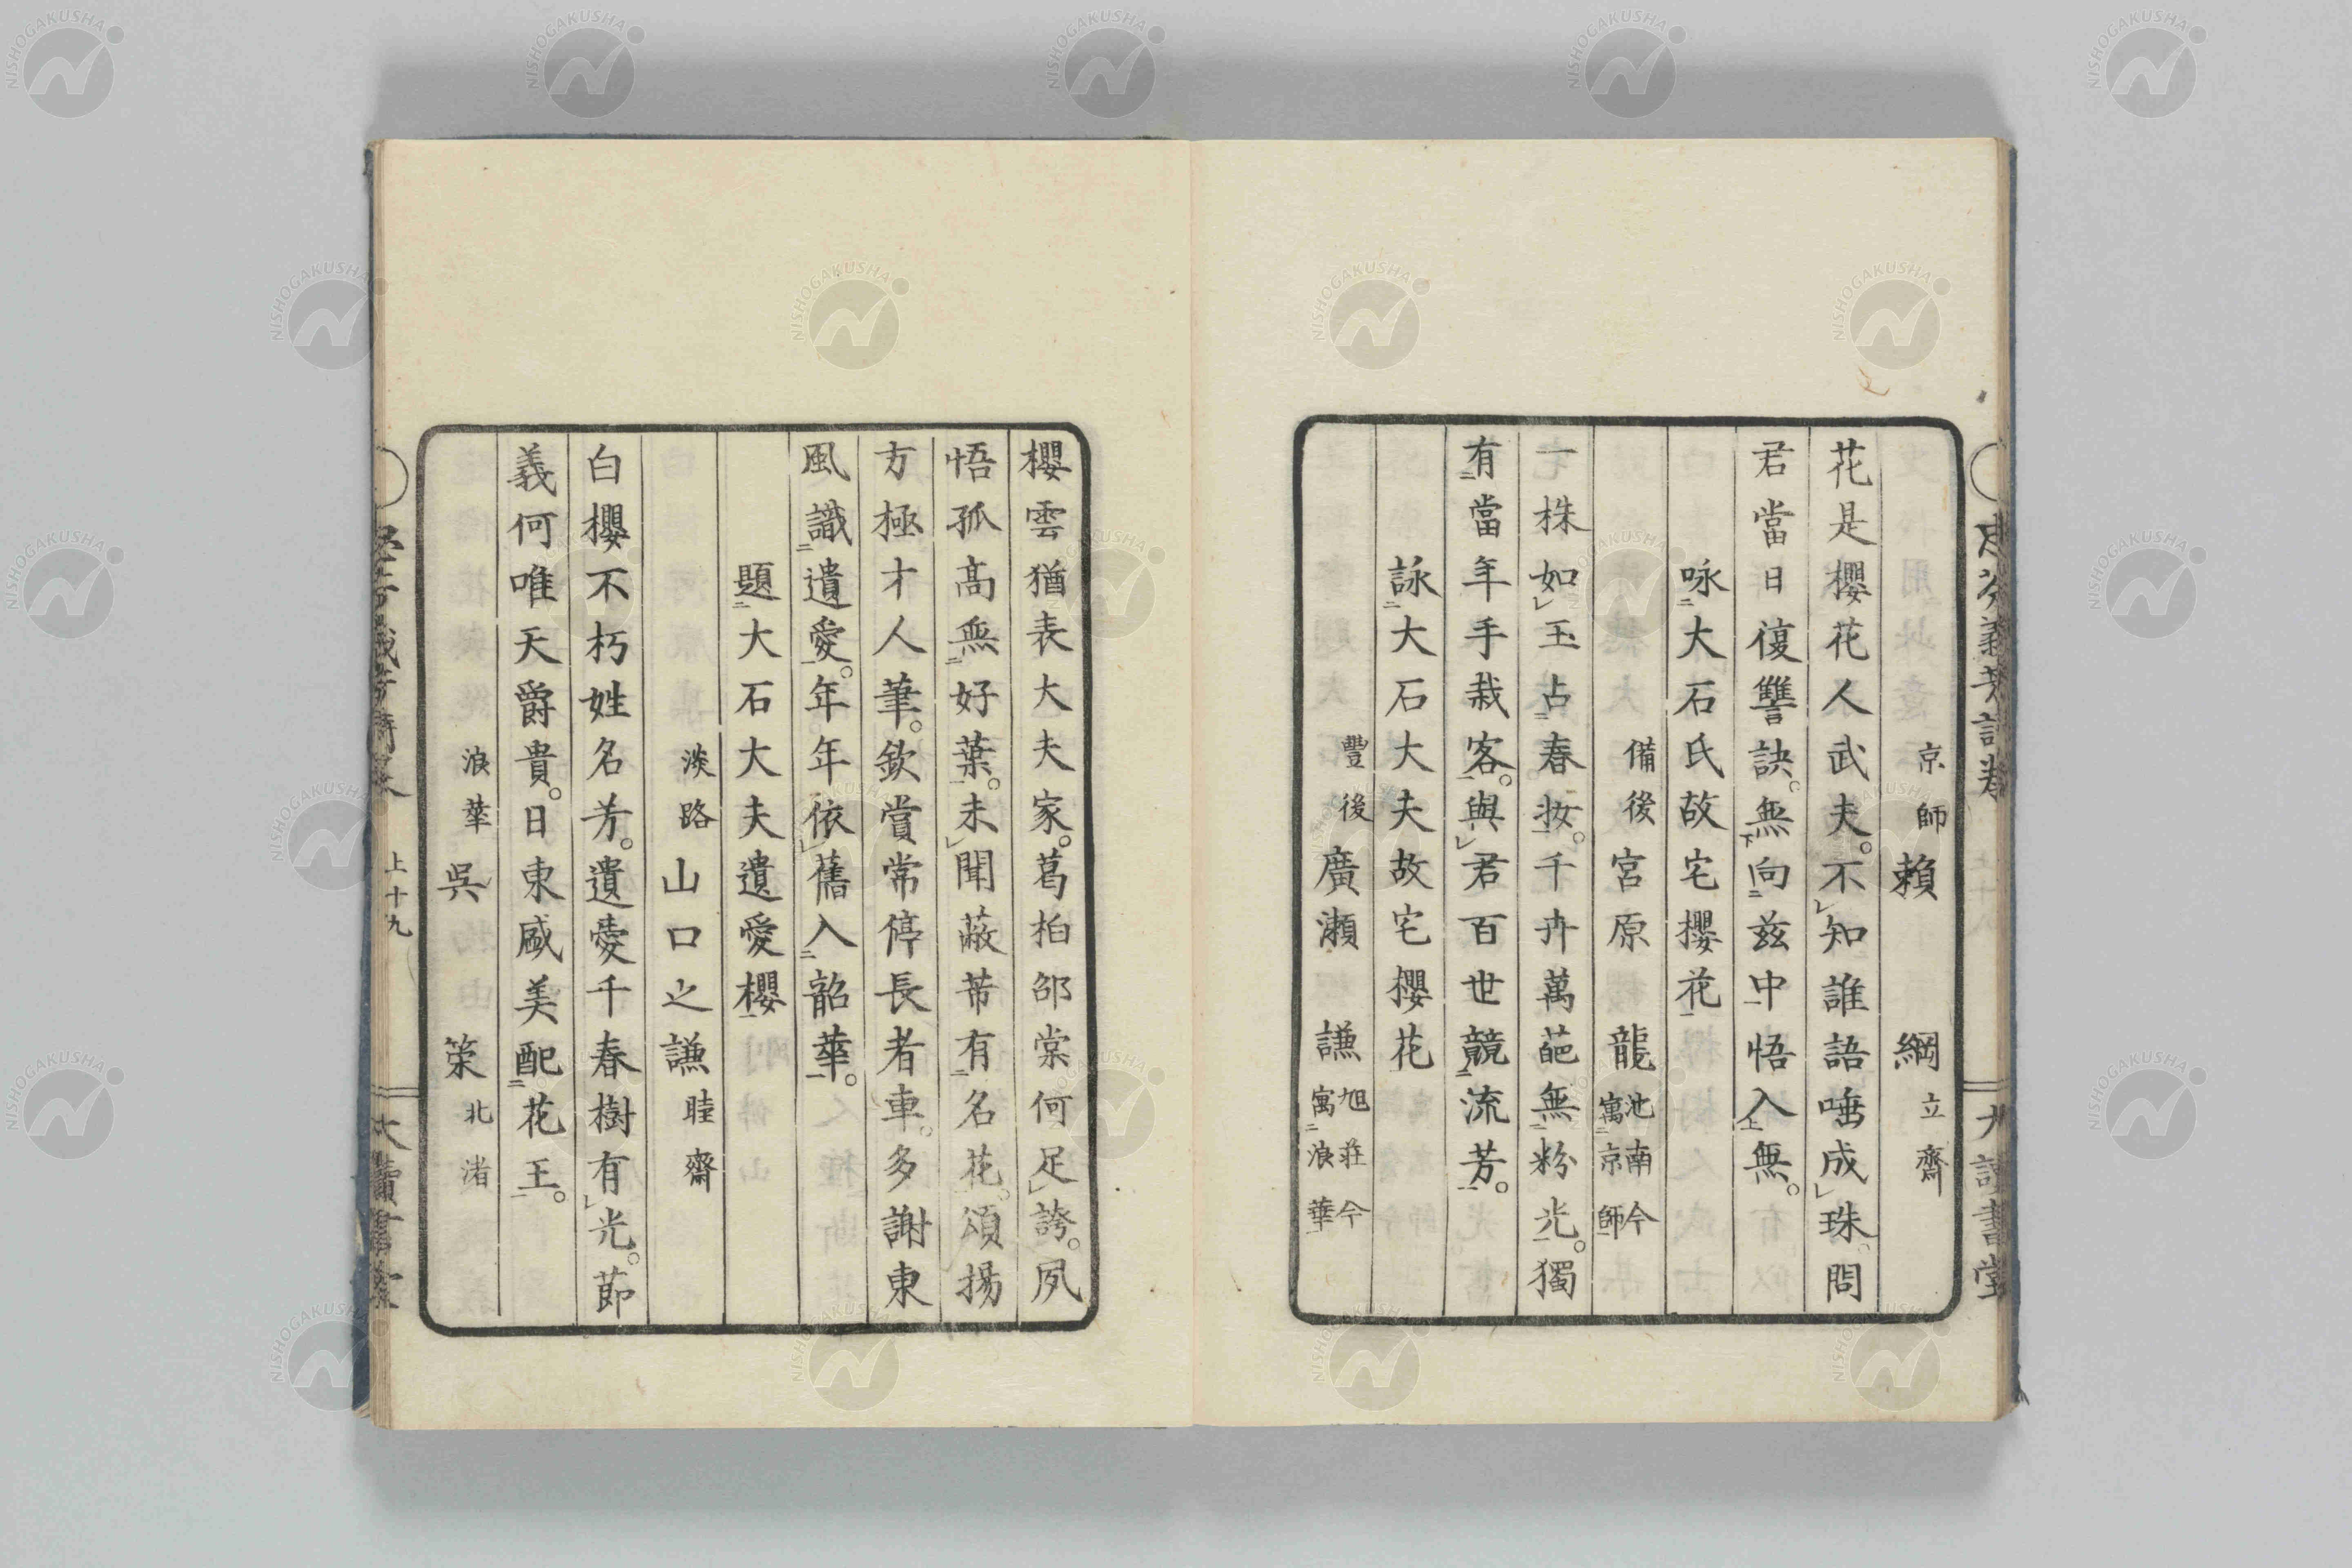 京師賴綱立齋
花是櫻花人武夫。不知誰語唾成珠。問
君當日復讐訣。無向玆中悟入無。
咏大石氏故宅櫻花
備後宮原龍池南今寓京師
一株如玉占春妝。千卉萬葩無粉光。獨
有當年手栽客。與君百世競流芳。
詠大石大夫故宅櫻花
豐後廣瀨謙旭莊今寓浪華
櫻雲猶表大夫家。葛柏邵棠何足誇。夙
悟孤高無好葉。未聞蔽芾有名花。頌揚
方極才人筆。欽賞常停長者車。多謝東
風識遺愛。年年依舊入韶華。
題大石大夫遺愛櫻
淡路山口之謙睦齋
白櫻不朽姓名芳。遺愛千春樹有光。節
義何唯天爵貴。日東盛美配花王。
浪華吳策北渚
上十九
讀書堂
NISHOGAKUSHA